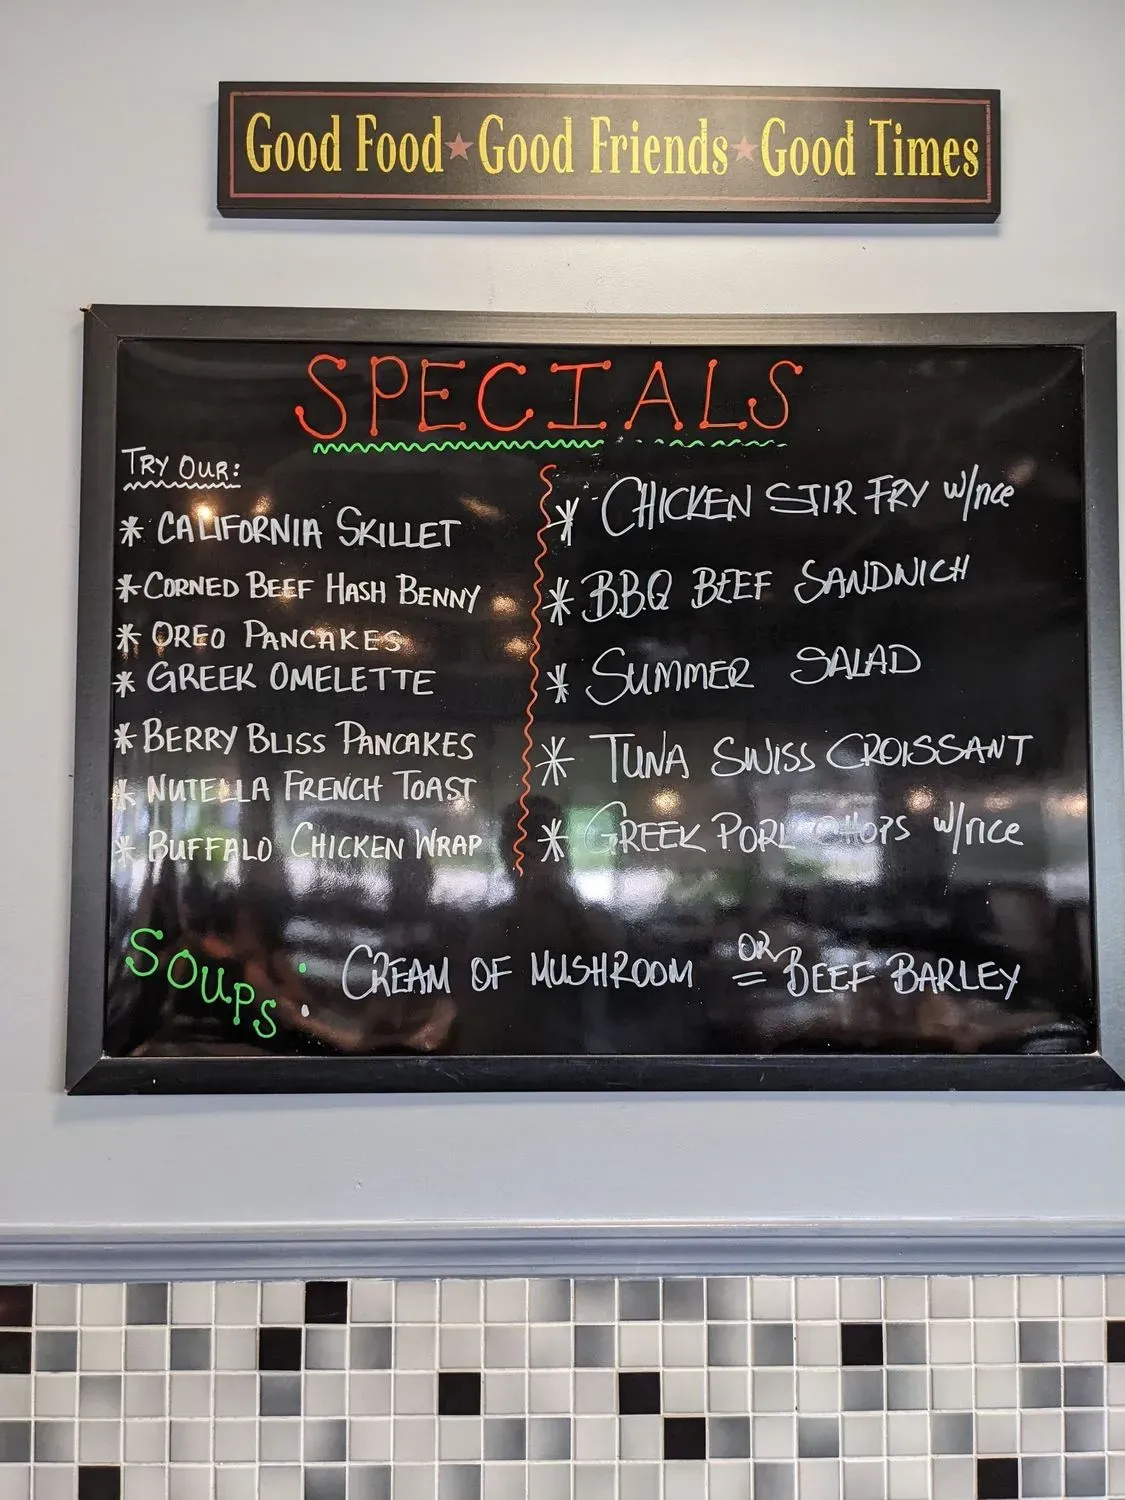 Good Food ★ Good Friends ★ Good Times
SPECIALS
TRY OUR:
* CALIFORNIA SKILLET
* CORNED BEEF HASH BENNY
* OREO PANCAKES
* GREEK OMELETTE
* BERRY BLISS PANCAKES
* NUTELLA FRENCH TOAST
* BUFFALO CHICKEN WRAP
* CHICKEN STIR FRY w/rice
* B.B.Q BEEF SANDWICH
* SUMMER SALAD
* TUNA SWISS CROISSANT
* GREEK PORK CHOPS w/rice
SOUPS: CREAM OF MUSHROOM OR BEEF BARLEY